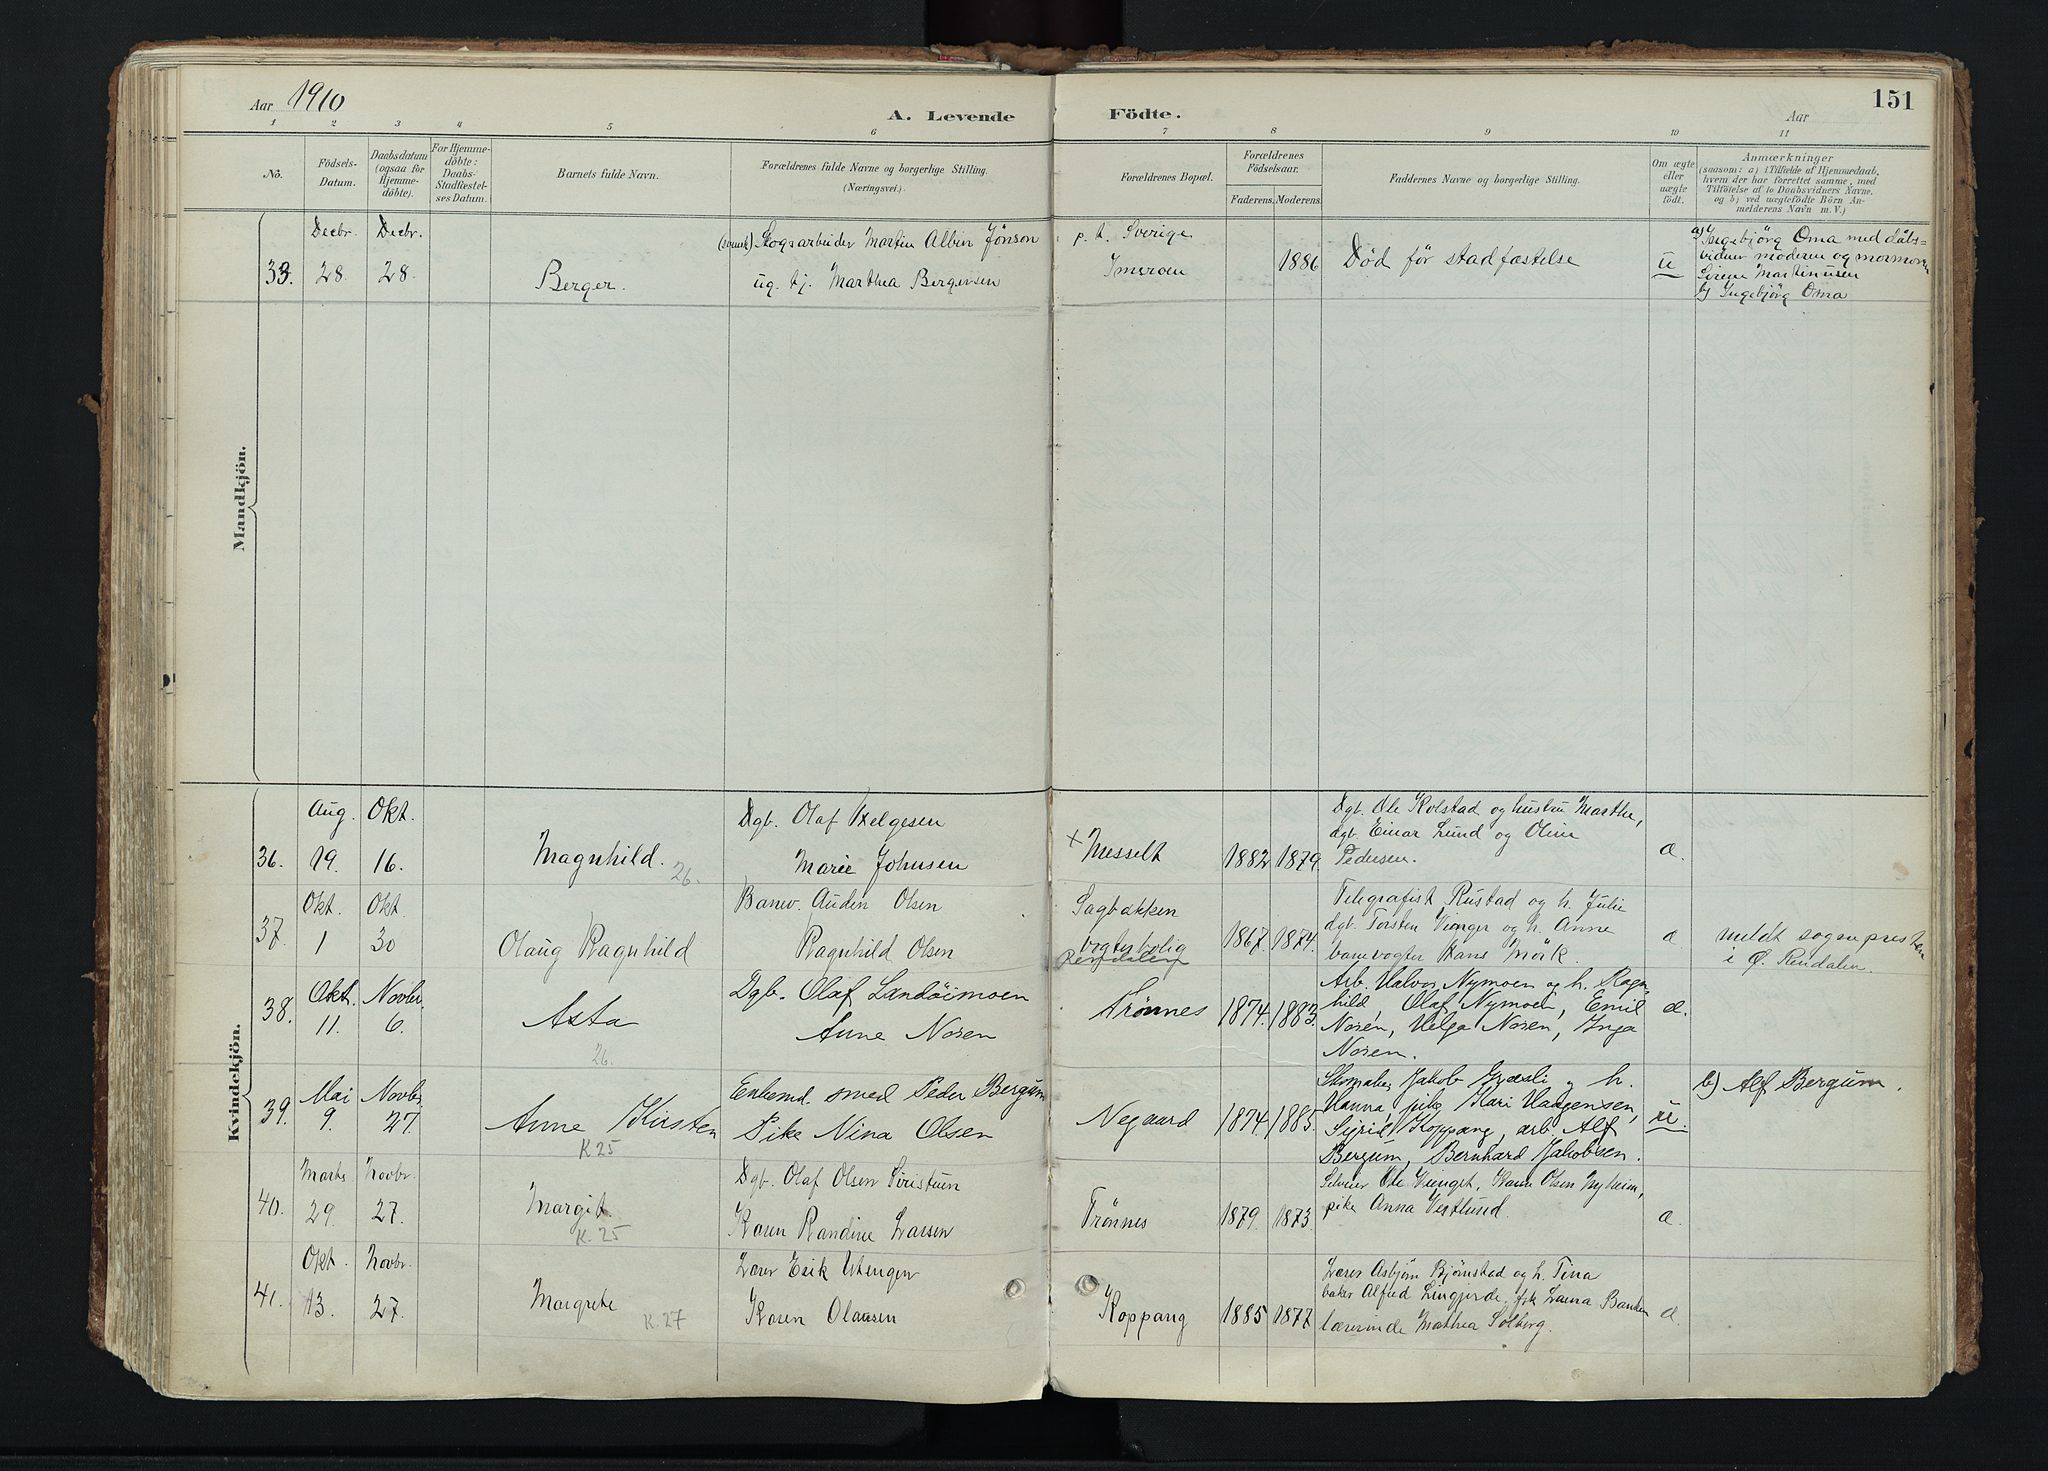 Aar 1910
A. Levende Födte.
Aar
151
1 2 3 4 5 6 7 8 9 10 11
No.
Födsels-
Datum.
Daabsdatum
(ogsaa for
Hjemme-
döbte).
For Hjemme-
döbte:
Daabs-
Stadfæstel-
ses Datum.
Barnets fulde Navn.
Forældrenes fulde Navne og borgerlige Stilling.
(Næringsvei.)
Forældrenes Bopæl.
Forældrenes
Födselsaar.
Faderens. Moderens.
Faddernes Navne og borgerlige Stilling.
Om ægte
eller
uægte
födt.
Anmærkninger
(saasom: a) i Tilfælde af Hjemmedaab,
hvem der har forrettet samme, med
Tilföielse af to Daabsvidners Navne.
og b) ved uægtefödte Börn An-
melderens Navn m. V.)
Mandkjön.
33.
Decbr.
28.
Decbr.
28.
Berger.
(svensk) Skogsarbeider Martin Albin Jönson
ug. tj. Marthea Bergersen
p. t. Sverige
Imeroen
1886
Död för stadfæstelse
u
a) Ingebjörg Oma med dåbs-
vidner moderen og mormoren
Sirene Martinusen
b) Ingebjörg Oma
Kvindekjön.
36.
Aug.
19.
Okt.
16.
Magnhild.
26.
Dgb. Olaf Helgesen
Marie Johnsen
+ Messelt
1882 1879.
Dgb. Ole Kolstad og hustru Marthe,
dgb. Einar Lund og Oline
Pedersen.
æ.
37.
Okt.
1
Okt.
30
Olaug Ragnhild
Banev. Auden Olsen
Ragnhild Olsen
Sagbakken
vogterbolig
Rendalen
1867. 1874.
Telegrafist Rustad og h. Julie
dgb. Torsten Vionger og h. Anne
banevogter Hans Mörk.
æ
meldt sognepresten
i Ø. Rendalen.
38.
Okt.
11.
Novbr.
6.
Asta
26.
Dgb. Olaf Landöimoen
Anne Noren
Trönnes
1874. 1883.
Arb. Halvor Nymoen og h. Ragn-
hild Olaf Nymoen, Emil
Norén, Helga Noren, Inga
Noren.
æ.
39.
Mai
9.
Novbr.
27.
Anne Kirsten
K 25
Enkemd. smed Peder Bergum
Pike Nina Olsen
Negaard
1874. 1885.
Skomaker Jakob Græsli og h.
Hanna, pike Kari Haagensen,
Sigrid Koppang, arb. Alf
Bergum, Bernhard Jakobsen.
u.
b) Alf Bergum.
40.
Marts
29.
Novbr.
27.
Margit
K. 25
Dgb. Olaf Olsen Söristuen
Karen Randine Larsen
Trönnes
1879. 1873
Ole Vinget, Olsen Nyheim,
pike Anna Vestlund.
æ.
41.
Okt.
13.
Novbr.
27.
Margrete
K. 27
Lærer Erik Utengen
Karen Olausen
Koppang
1885 1877
Lærer Asbjörn Björnstad og h. Tina
baker Alfred Lingjerde, frk Laura Banken
lærerinde Mathea Solberg.
æ.